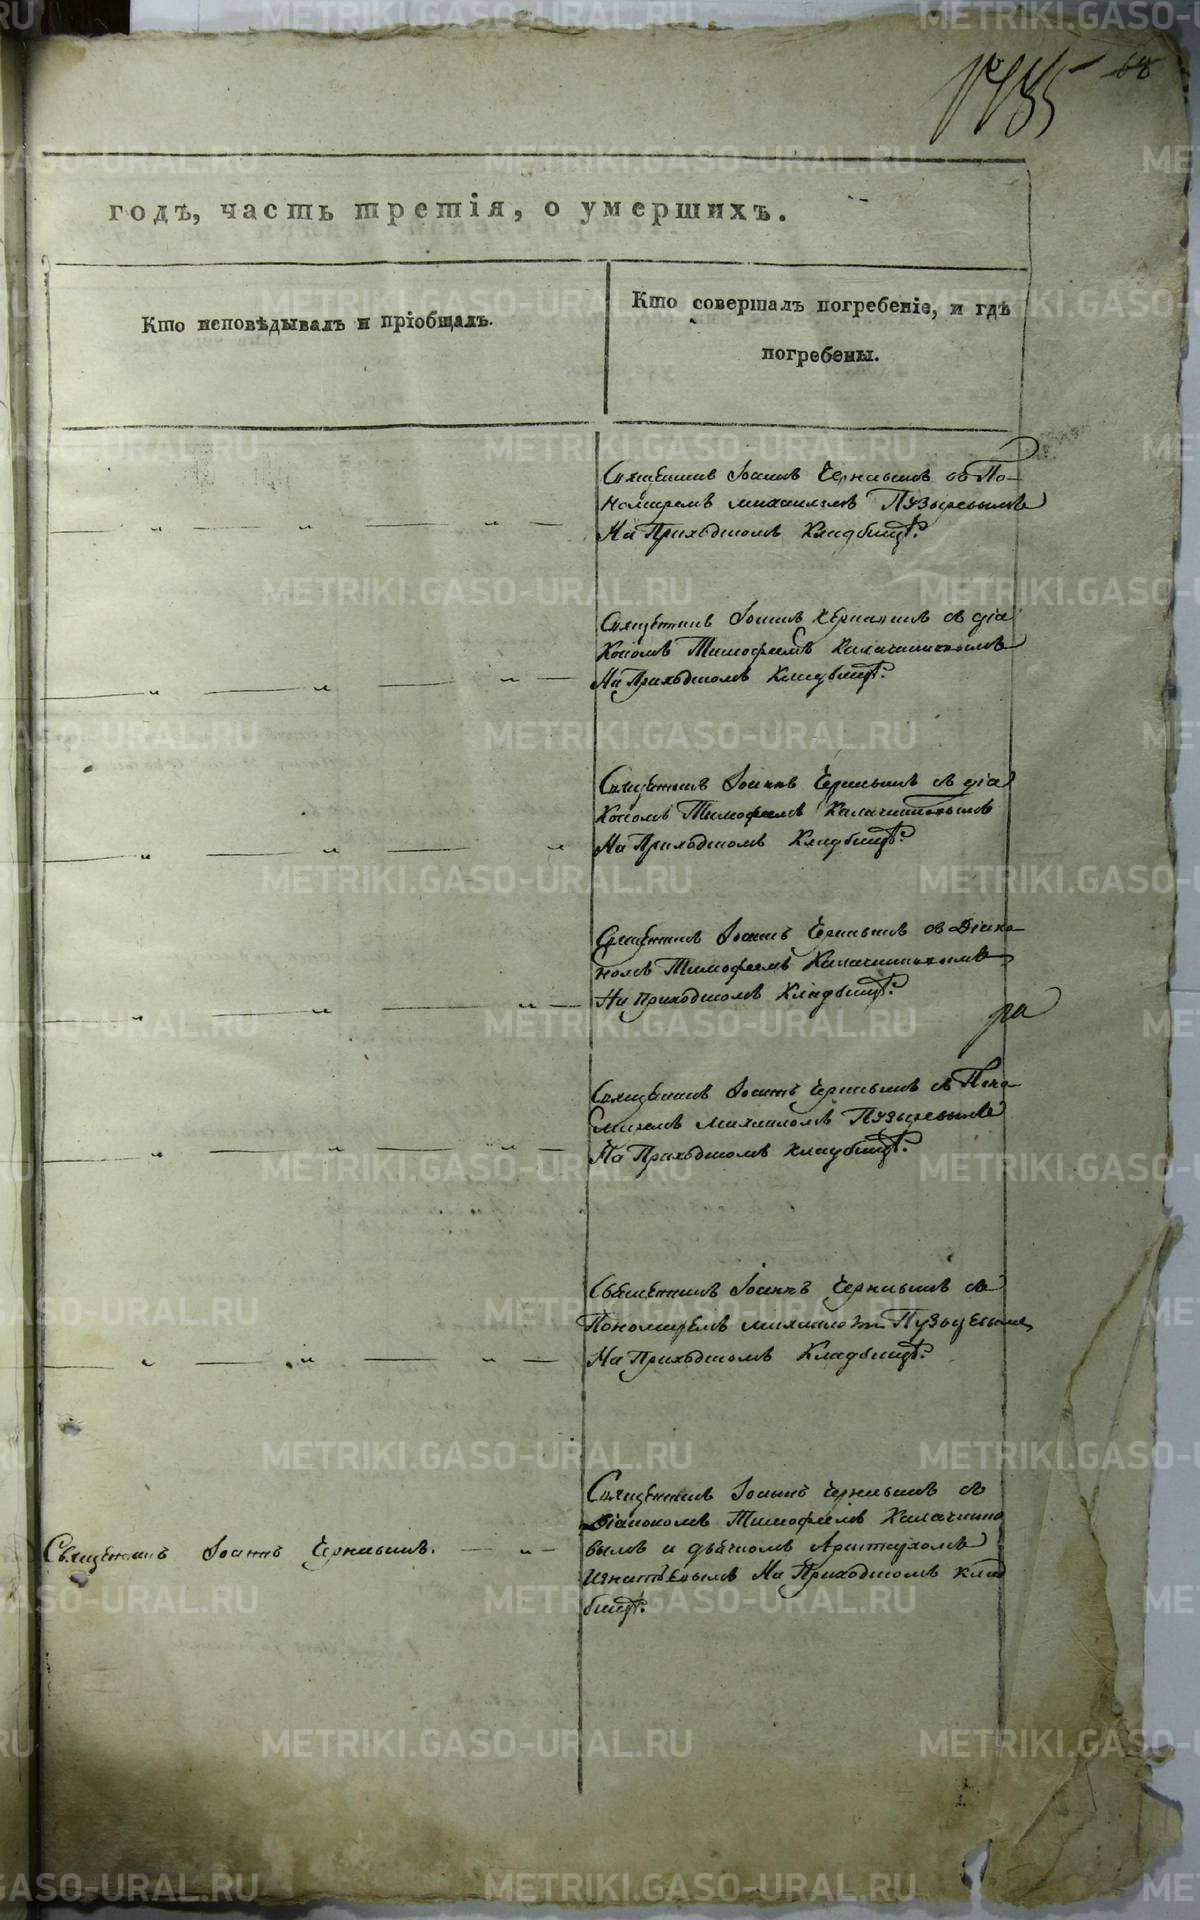 185 68
годѣ, часть третія, о умершихъ.
Кто исповѣдывалъ и пріобщалъ.
Кто совершалъ погребеніе, и гдѣ
погребены.
Священникъ Іоаннъ Чернавинъ съ По-
номаремъ Михаиломъ Пузыревымъ
На Приходскомъ Кладбищѣ.
Священникъ Іоаннъ Чернавинъ съ діа
кономъ Тимофеемъ Калачниковымъ
На Приходскомъ Кладбищѣ.
Священникъ Іоаннъ Чернавинъ съ діа
кономъ Тимофеемъ Калачниковымъ
На Приходскомъ Кладбищѣ.
Священникъ Іоаннъ Чернавинъ съ Діако
номъ Тимофеемъ Калачниковымъ
На Приходскомъ Кладбищѣ.
ра
Священникъ Іоаннъ Чернавинъ съ Поно
маремъ Михаиломъ Пузыревымъ
На Приходскомъ Кладбищѣ.
Священникъ Іоаннъ Чернавинъ съ
Пономаремъ Михаиломъ Пузыревымъ
На Приходскомъ Кладбищѣ.
Священникъ Іоаннъ Чернавинъ.
Священникъ Іоаннъ Чернавинъ съ
Діакономъ Тимофеемъ Калачнико
вымъ и дьячкомъ Аристархомъ
Игнатьевымъ На Приходскомъ клад
бищѣ.
METRIKI.GASO-URAL.RU